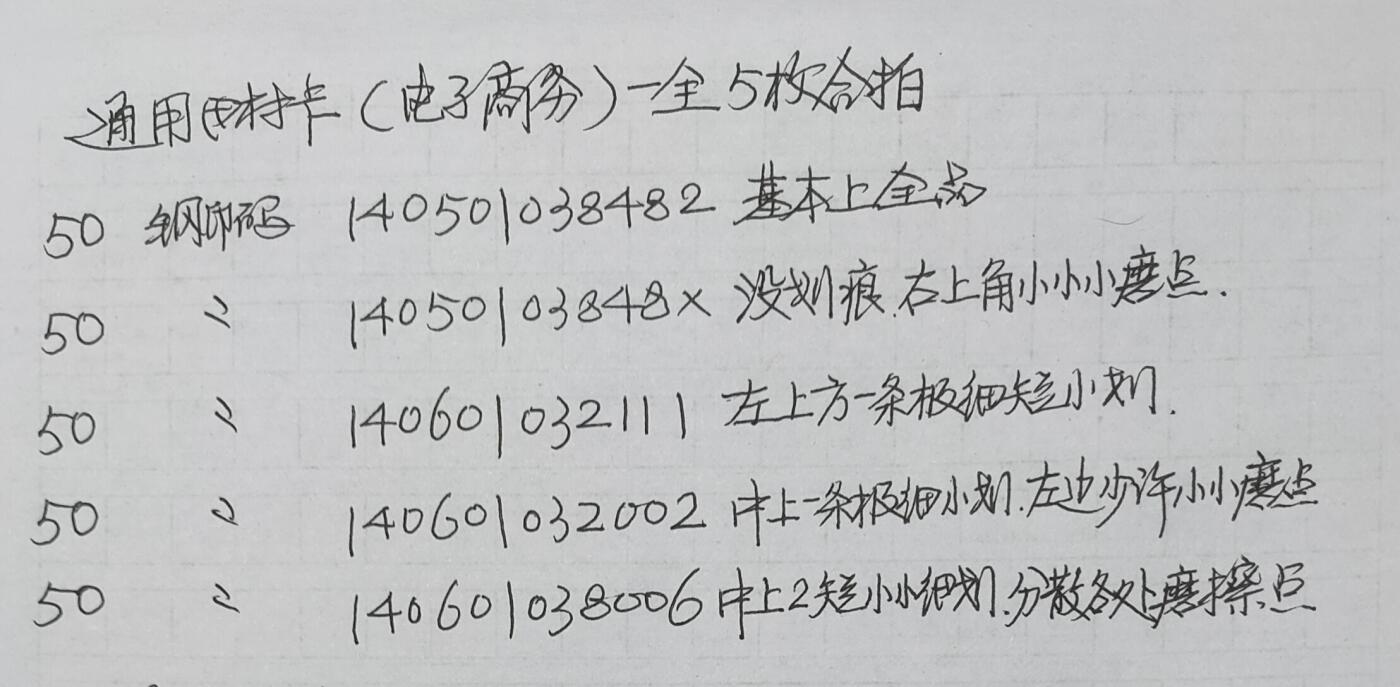 通用田村卡（电子商务）一全5枚合拍
50 钢印码 140501038482 基本上全品
50 〃 14050103848× 没划痕.右上角小小小磨点.
50 〃 140601032111 左上方一条极细短小划.
50 〃 140601032002 中上一条极细小划.左边少许小小磨点
50 〃 140601038006 中上2短小小细划.分散各处磨擦点